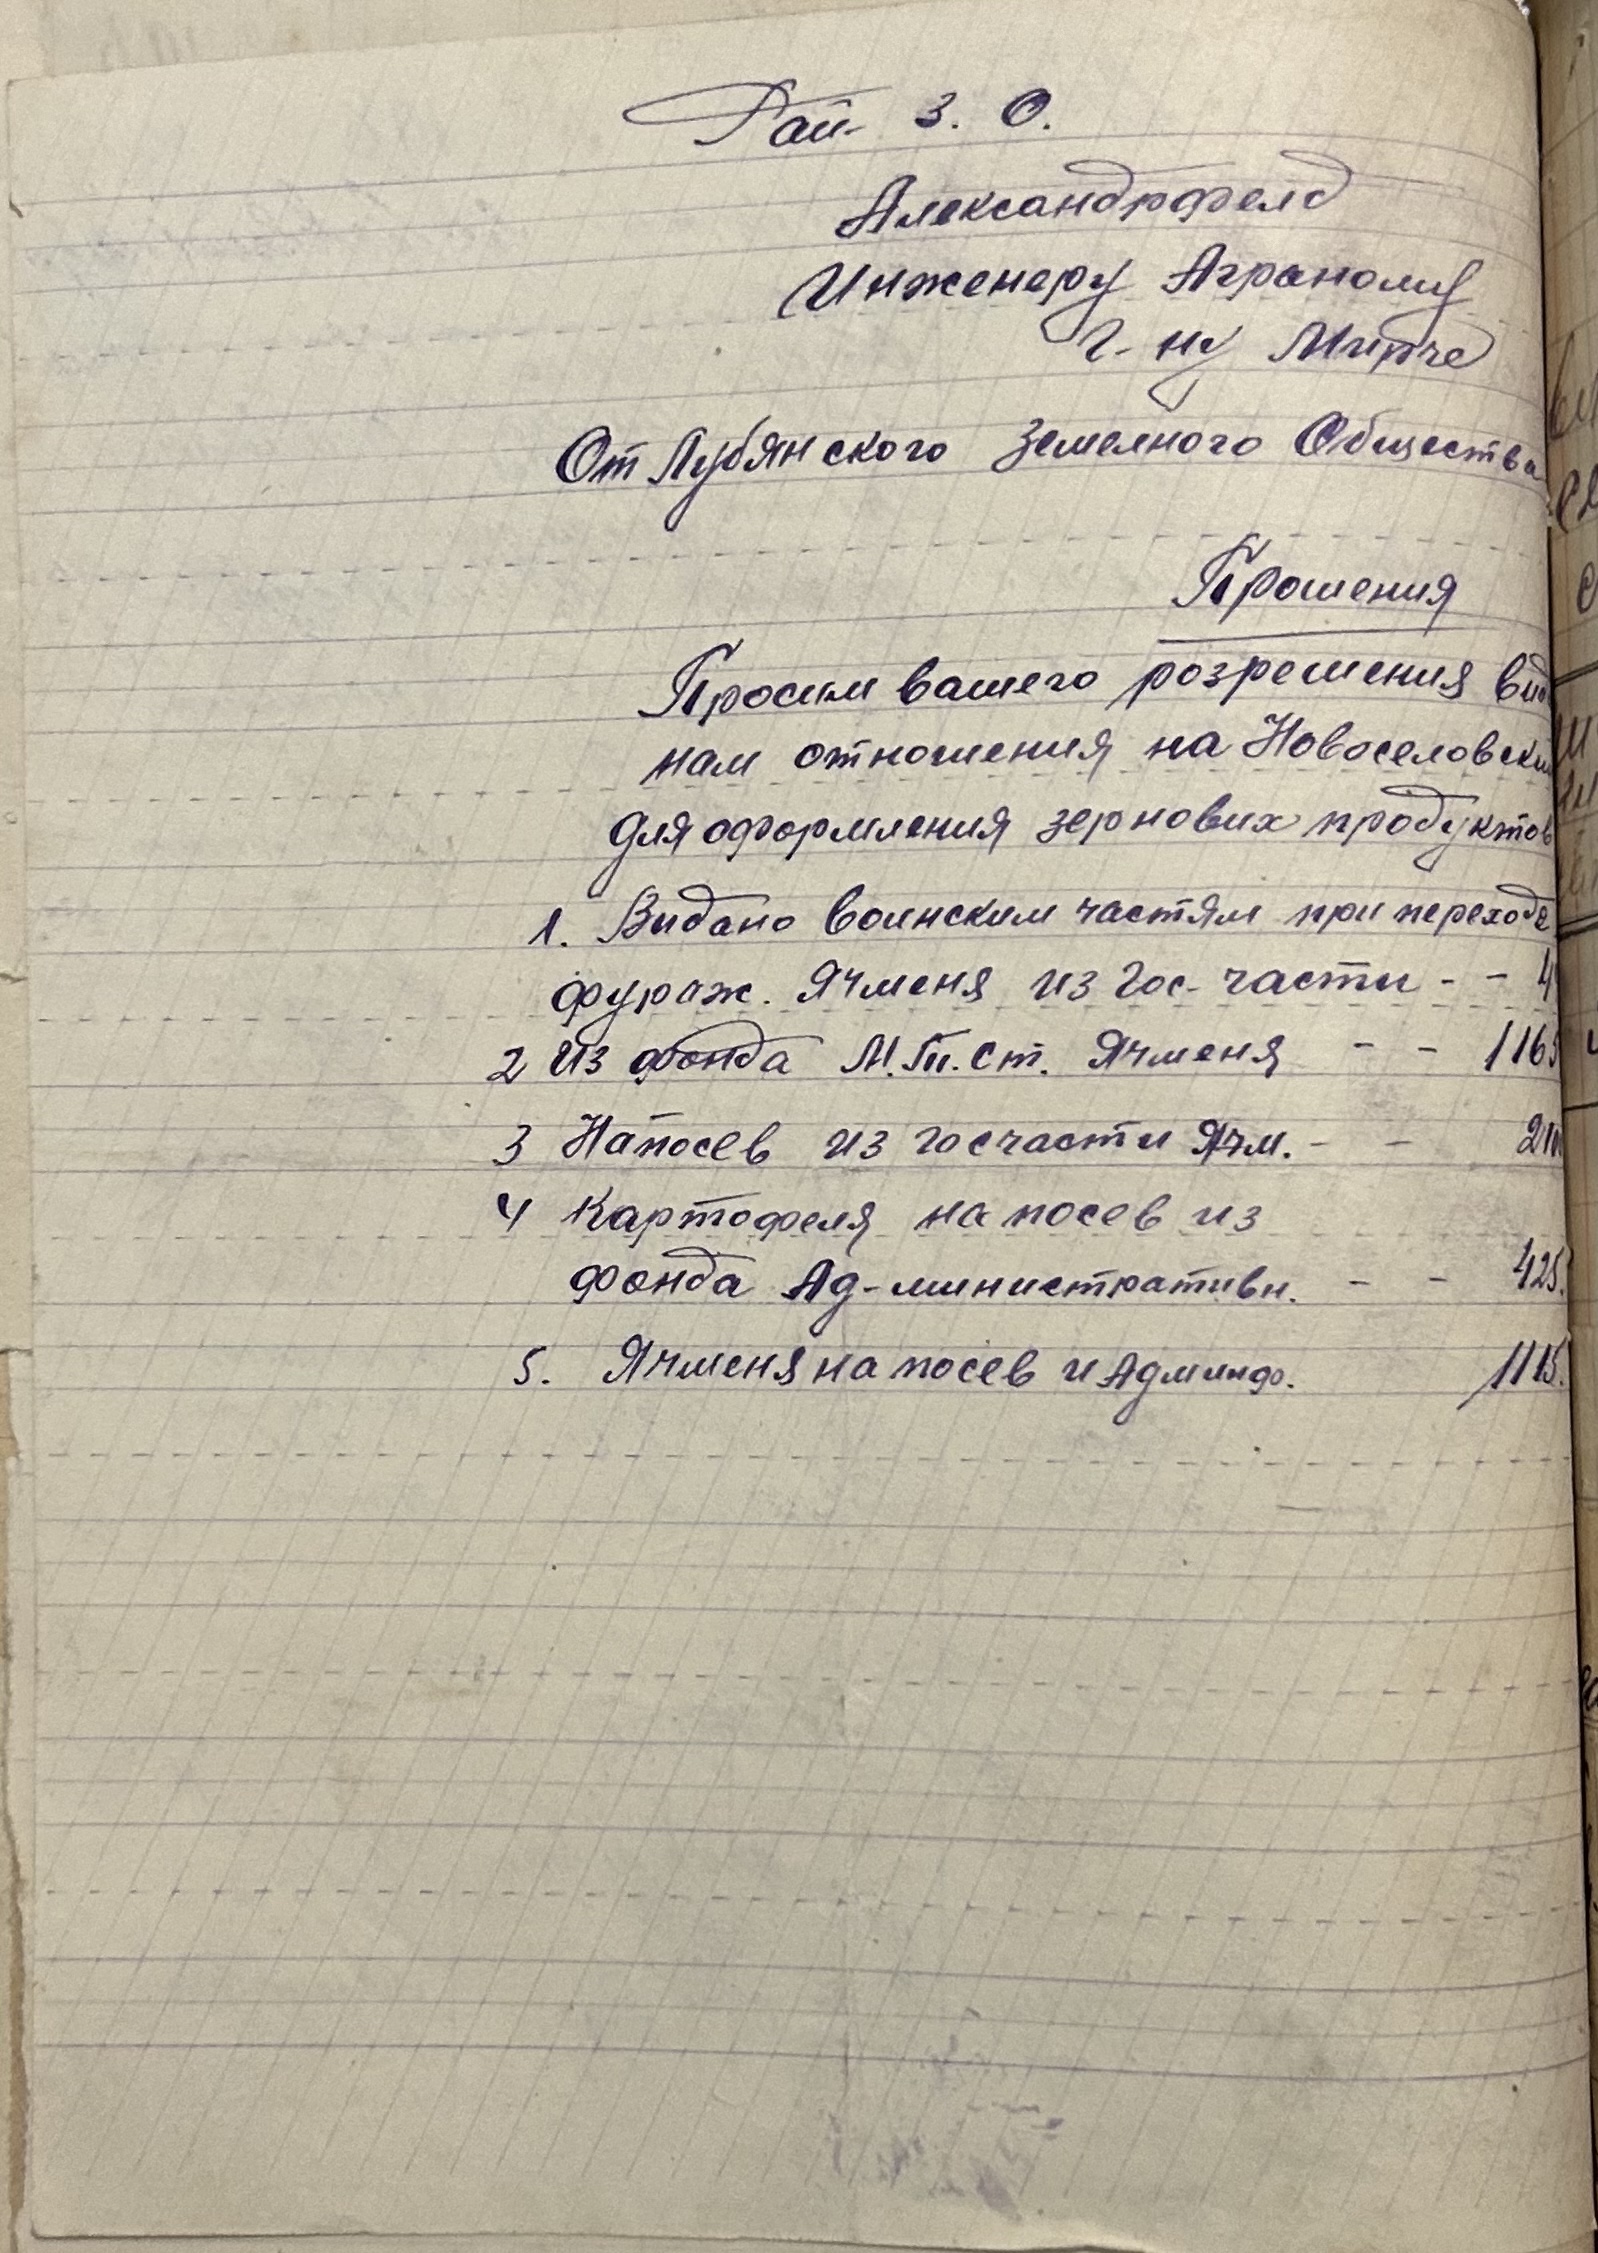 Рай- З. О.
Александрфелд
Инженеру Аграному
Г-ну
От Лубянского Земелного Общества
Прошения
Просим вашего розрешения вид
нам отношения на Новоселовски
для оформления зернових продуктов
1. Видано воинским частям при переходе
фураж. Ячменя из Гос- части - - 4
2 Из фонда М.Т.Ст. Ячменя - - 1165
3 На посев из госчасти Ячм. - -
4 Картофеля на посев из
фонда Ад-министративн. - - 425.
5. Ячменя на посев и 1115.